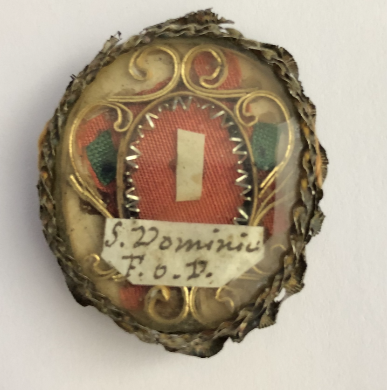 S. Dominic
F. o. P.